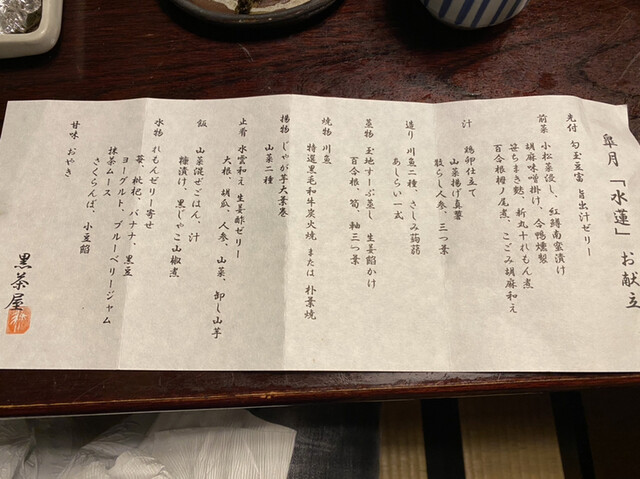 皐月「水蓮」お献立
先付 勾玉豆富 旨出汁ゼリー
前菜 小松菜浸し、紅鱒南蛮漬け
胡麻味噌掛け、合鴨燻製
笹ちまき麩、新丸十れもん煮
百合根梅ノ尾煮、こごみ胡麻和え
汁 鶏卵仕立て
山菜揚げ真薯
散らし人参、三つ葉
造り 川魚二種、さしみ蒟蒻
あしらい一式
蒸物 玉地すーぷ蒸し 生姜餡かけ
百合根、筍、軸三つ葉
焼物 川魚
特選黒毛和牛炭火焼 または 朴葉焼
揚物 じゃが芋大葉巻
山菜二種
止肴 水雲和え 生姜酢ゼリー
大根、胡瓜、人参、山菜、卸し山芋
飯 山菜混ぜごはん、汁
糠漬け、黒じゃこ山椒煮
水物 れもんゼリー寄せ
苺、枇杷、バナナ、黒豆
ヨーグルト、ブルーベリージャム
抹茶ムース
さくらんぼ、小豆餡
甘味 おやき
黒茶屋